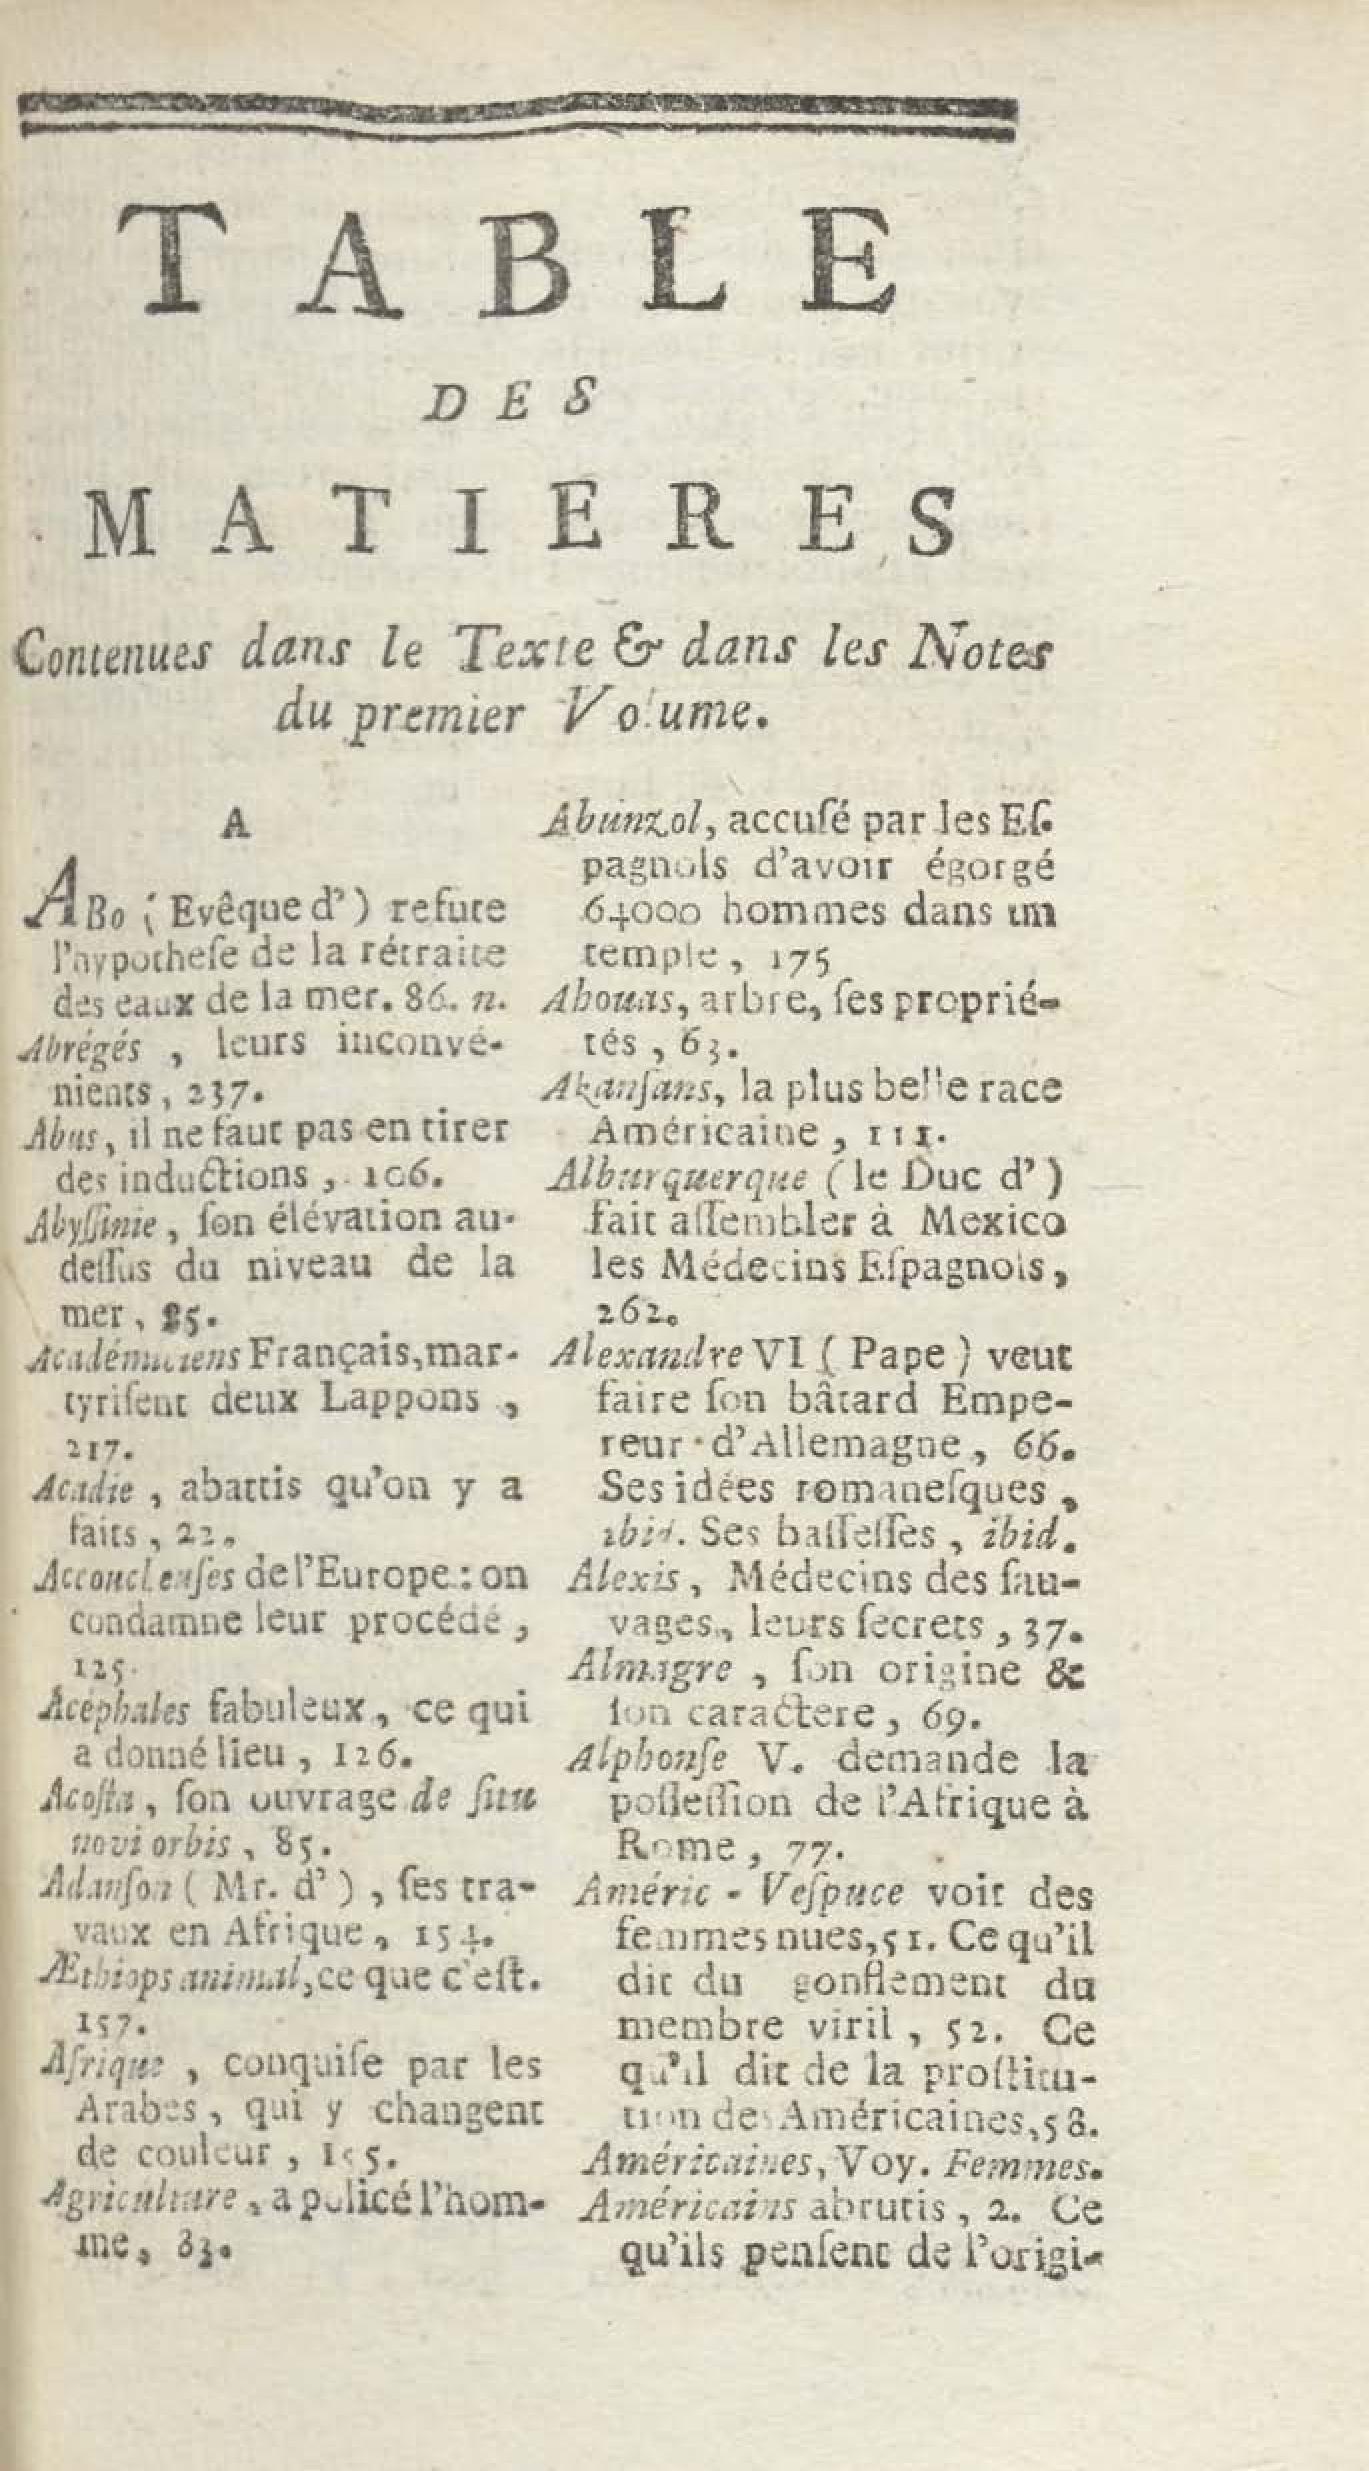 TABLE
DES
MATIERES
Contenues dans le Texte & dans les Notes
du premier Volume.
A
ABo ( Evêque d') refute
l'hypothese de la rétraite
des eaux de la mer. 86. n.
Abrégés , leurs inconvé-
nients, 237.
Abus, il ne faut pas en tirer
des inductions , 106.
Abyſſinie, ſon élévation au-
deſſus du niveau de la
mer, 85.
Académiciens Français, mar-
tyriſent deux Lappons ,
217.
Acadie , abattis qu'on y a
faits, 22.
Accoucheuſes de l'Europe : on
condamne leur procédé,
125.
Acéphales fabuleux, ce qui
a donné lieu , 126.
Acoſta, ſon ouvrage de ſitu
novi orbis, 85.
Adanſon ( Mr. d') , ſes tra-
vaux en Afrique, 154.
Æthiops animal, ce que c'eſt.
157.
Afrique , conquiſe par les
Arabes, qui y changent
de couleur , 155.
Agriculture, a policé l'hom-
me, 83.
Abunzol, accuſé par les Eſ-
pagnols d'avoir égorgé
64000 hommes dans un
temple, 175
Ahouas, arbre, ſes proprié-
tés , 63.
Akanſans, la plus belle race
Américaine , 111.
Alburquerque ( le Duc d')
fait aſſembler à Mexico
les Médecins Eſpagnols,
262.
Alexandre VI ( Pape ) veut
faire ſon bâtard Empe-
reur d'Allemagne, 66.
Ses idées romaneſques ,
ibid. Ses baſſeſſes , ibid.
Alexis, Médecins des ſau-
vages, leurs ſecrets , 37.
Almagre , ſon origine &
ſon caractere, 69.
Alphonſe V. demande la
poſſeſſion de l'Afrique à
Rome, 77.
Améric - Veſpuce voit des
femmes nues, 51. Ce qu'il
dit du gonflement du
membre viril, 52. Ce
qu'il dit de la proſtitu-
tion des Américaines, 58.
Américaines, Voy. Femmes.
Américains abrutis, 2. Ce
qu'ils penſent de l'origi-